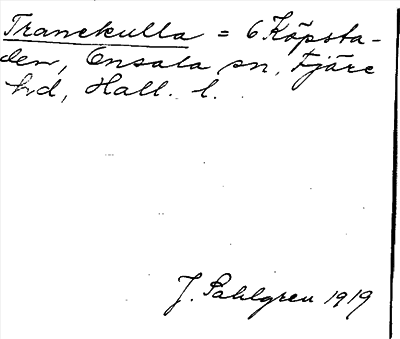 Tranekulla = 6 Köpsta-
den, Onsala sn, Fjäre
hd, Hall. l.
J. Sahlgren 1919